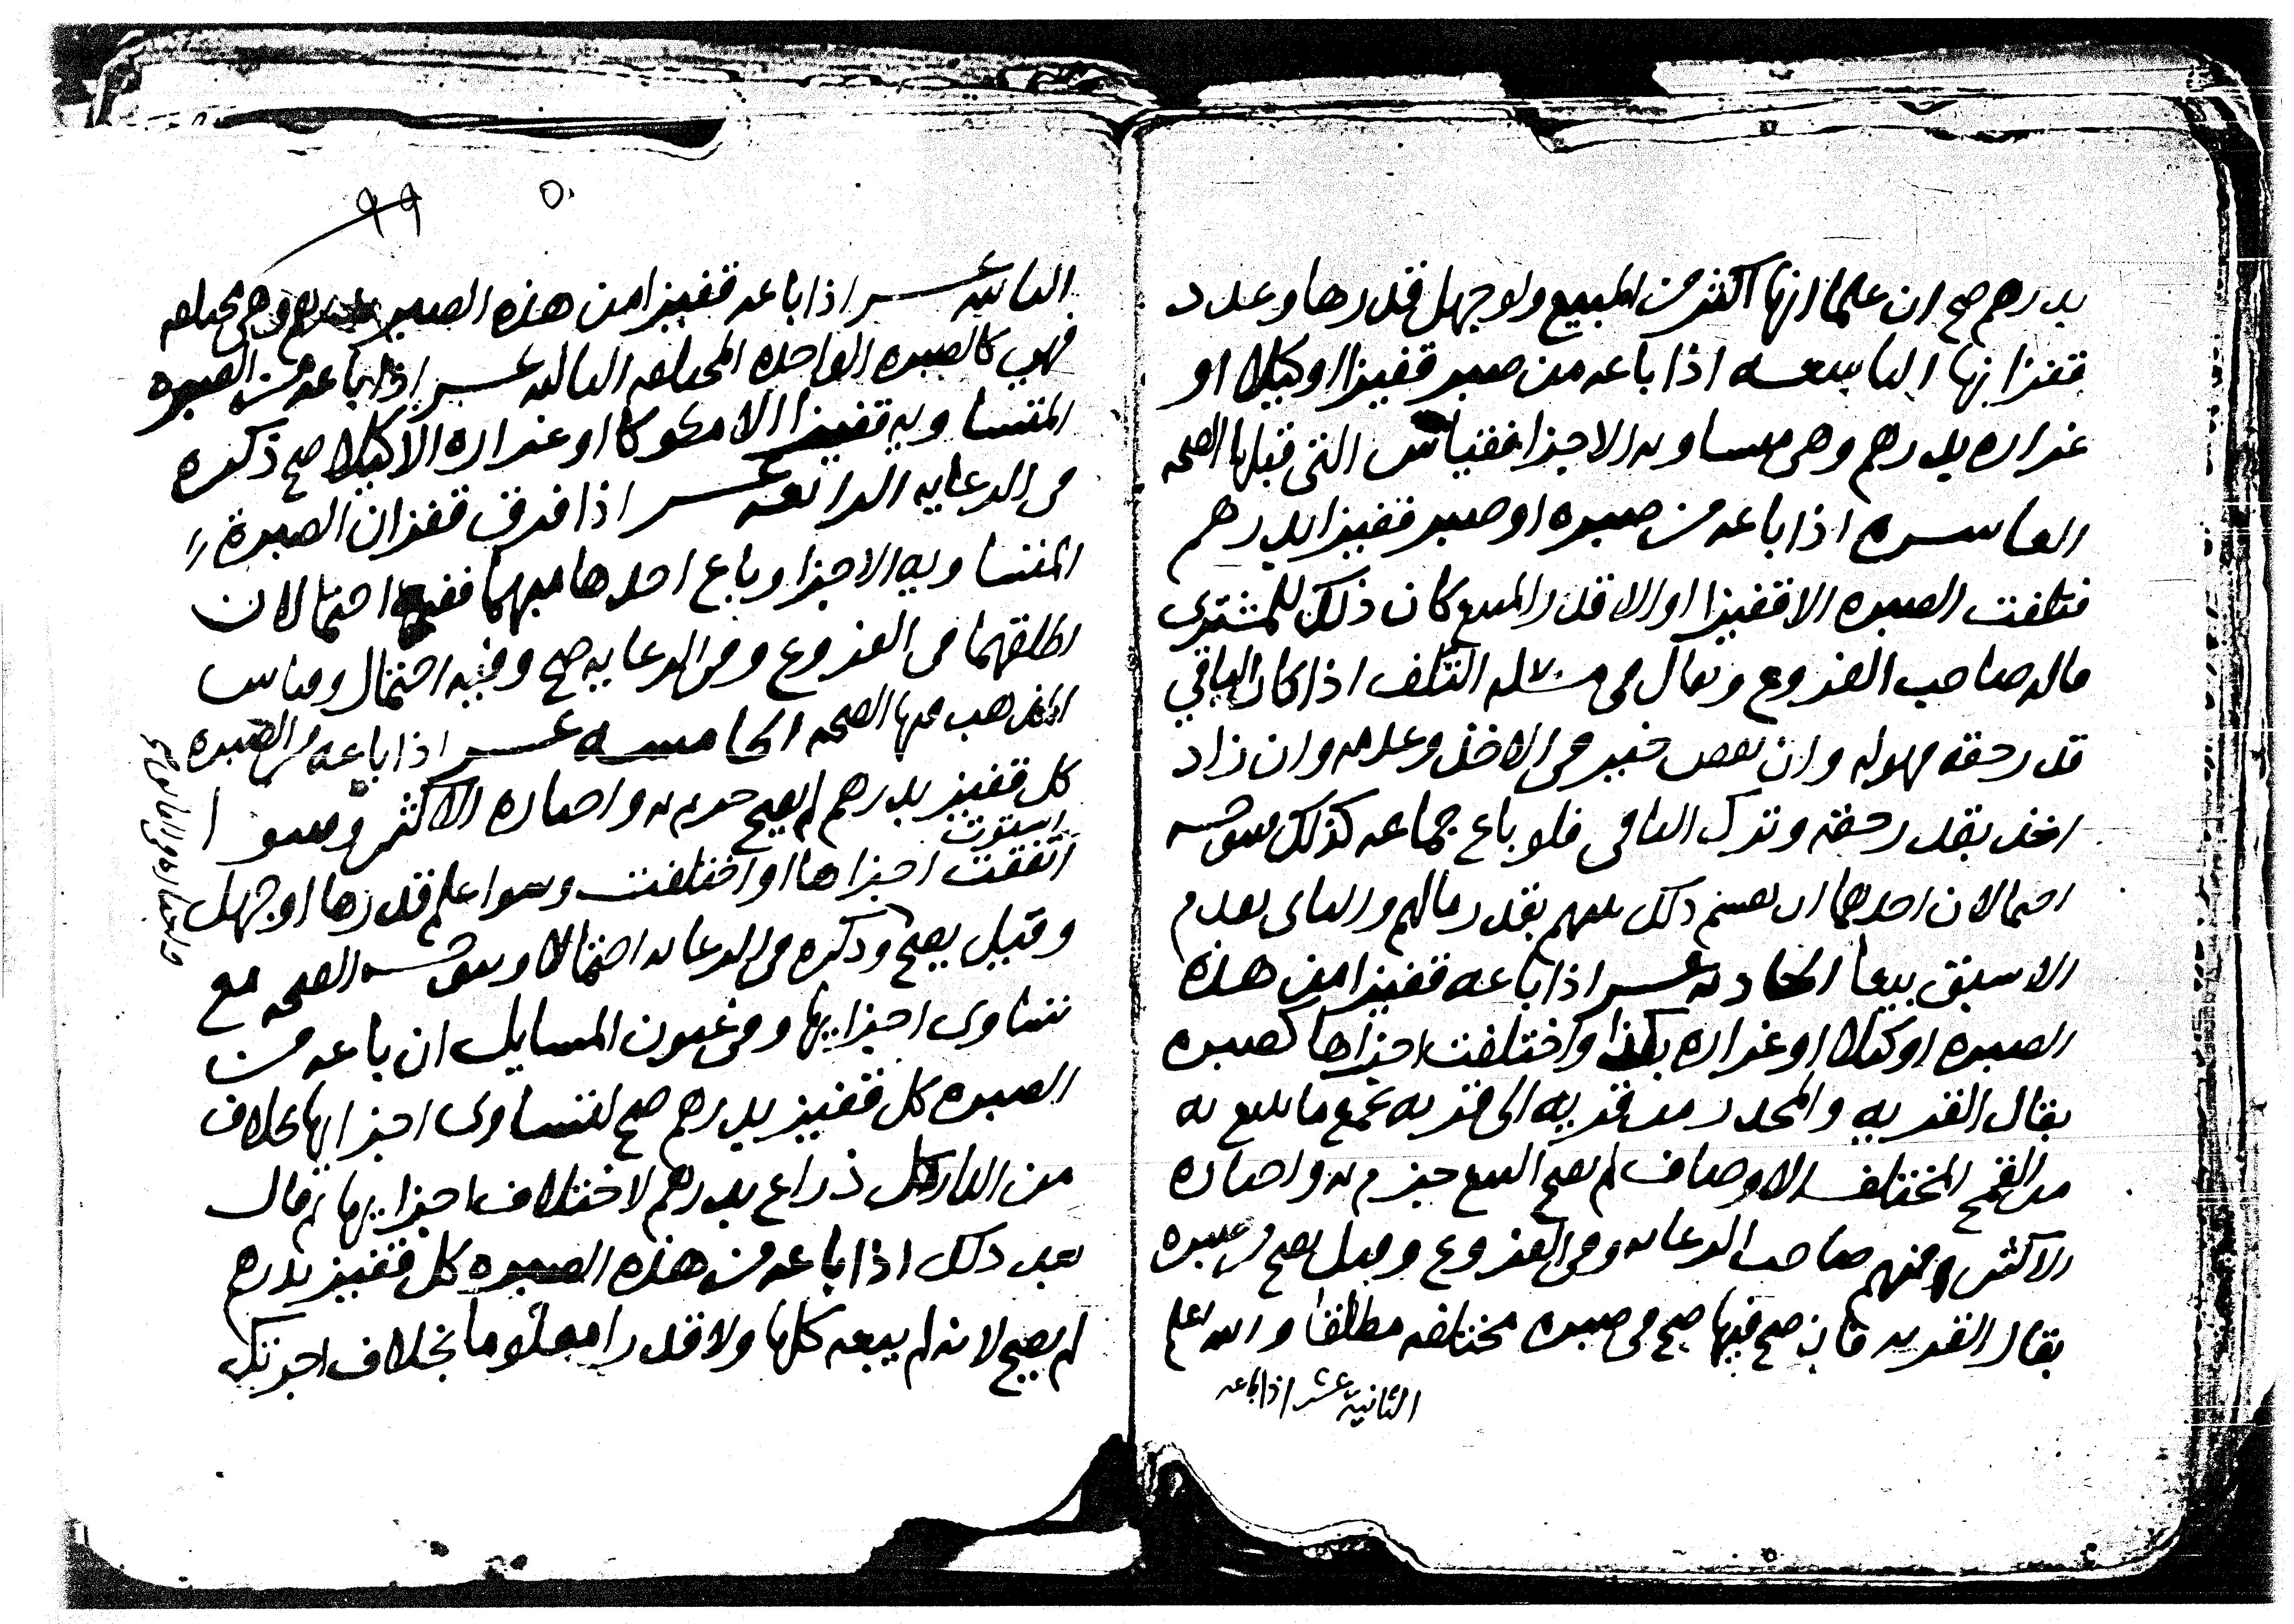 بدرهم صح ان علما انها اكثر من المبيع ولو جهل قدرها وعدد
قفزانها التاسعه اذا باعه من صبر قفيزا او كيلا او
غراره بدرهم وهى متساويه الاجزا فقياس التى قبلها الصحه
العاشره اذا باعه من صبره او صبر قفيزا بدرهم
فتلفت الصبره الا قفيزا او الا قدر المبيع كان ذلك للمشترى
قاله صاحب الفروع ويقال فى مسئلة التلف اذا كان الباقي
قدر حقه فهو له وان نقص خير فى الاخذ وعدمه وان زاد
اخذ بقدر حقه وترك الباقى فلو باع جماعه كذلك
احتمالان احدهما ان يقسم ذلك بينهم بقدر مالهم والثانى يقدم
الاسبق بيعا الحاديه عشر اذا باعه قفيزا من هذه
الصبره او كيلا او غراره بكذا واختلفت اجزاها كصبره
بقال القريه والمحدر من قريه الى قريه يجمع ما يبيع به
من القمح المختلف الاوصاف لم يصح البيع جزم به واختاره
الاكثر ومنهم صاحب الرعايه وفى الفروع وقيل يصح من صبره
بقال القريه فان صح فيها صح فى صبره مختلفه مطلقا والله اعلم
الثانية عشر اذا باعه
٩٩ ٥٠
الثانيه عشر اذا باعه قفيزا من هذه الصبر وهى مختلفه
فهى كالصبره الواحده المختلفه الثالثه عشر اذا باعه من الصبره
المتساويه قفيزا الا مكوكا او غراره الا كيلا صح ذكره
فى الرعايه الرابعه عشر اذا فرق قفزان الصبرة
المتساويه الاجزا وباع احدها مبهما ففيه احتمالان
اطلقهما فى الفروع وفى الرعايه صح وفيه احتمال وقياس
المذهب فيها الصحه الخامسه عشر اذا باعه من الصبره
كل قفيز بدرهم لم يصح جزم به واختاره الاكثر وسوا
استوت
اتفقت اجزاها او اختلفت وسوا علم قدرها او جهل
وقيل يصح وذكره فى الرعايه احتمالا الصحه مع
تساوى اجزايها وفى عيون المسايل ان باعه من
الصبره كل قفيز بدرهم صح لتساوى اجزايها بخلاف
من الدار كل ذراع بدرهم لاختلاف اجزايها ثم قال
بعد ذلك اذا باعه من هذه الصبره كل قفيز بدرهم
لم يصح لانه لم يبعه كلها ولا قدرا معلوما بخلاف اجرتك